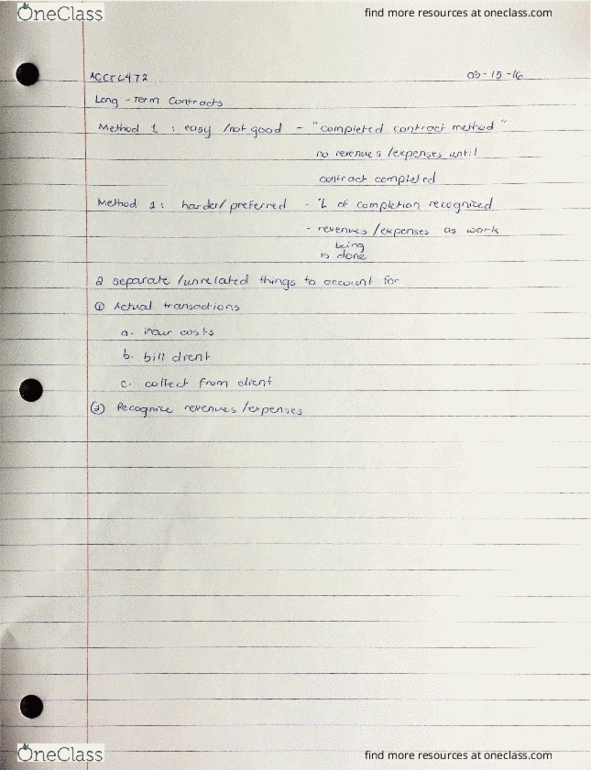 OneClass
find more resources at oneclass.com
05-15-16
Long-Term Contracts
Method 1: easy/not good - "completed contract method"
no revenues/expenses until
contract completed
Method 2: harder/preferred - % of completion recognized
- revenues/expenses as work
being
is done
2 separate/unrelated things to account for
① Actual transactions
a. incur costs
b. bill client
c. collect from client
② Recognize revenues/expenses
OneClass
find more resources at oneclass.com